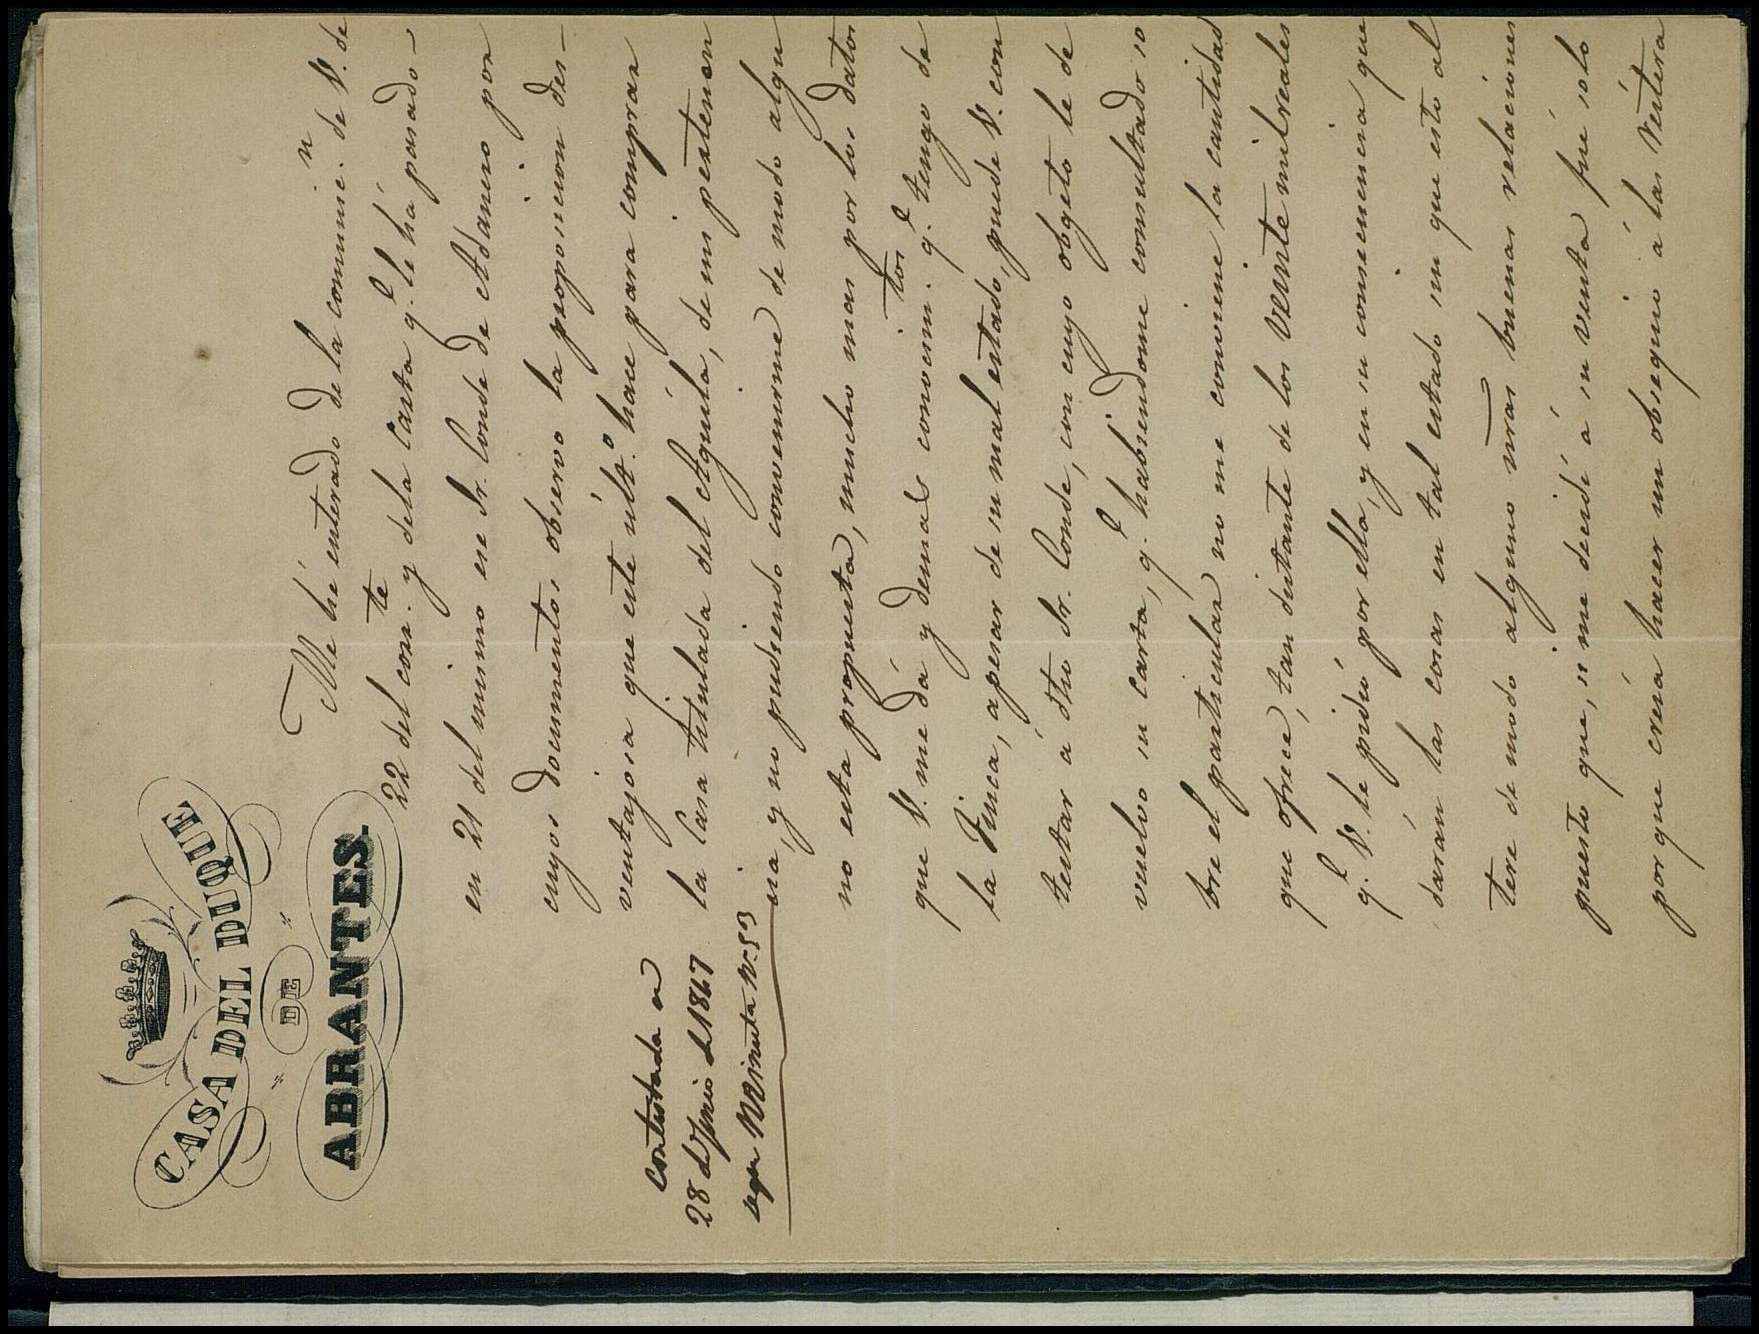 CASA DEL DUQUE
DE
ABRANTES.
Me hé enterado de la comunic.n de V. de
22 del corr.te y de la Carta q.e le há pasado
en 21 del mismo ese Sr. Conde de Adanero por
cuyos documentos observo la proposicion des-
ventajosa que este últ.o hace para comprar
la Casa titulada del Aguila, de mi pertenen
cia, y no pudiendo convenirme de modo algu
no esta propuesta, mucho mas por los datos
que V. me dá y demas conocim.tos q.e tengo de
la Finca, apesar de su mal estado, puede V. con
testar á dho Sr. Conde, con cuyo obgeto le de
vuelvo su carta, q.e habiendome consultado so
bre el particular no me conviene la cantidad
que ofrece, tan distante de los veinte mil reales
q.e V. le pidió por ella, y en su consecuencia que
darán las cosas en tal estado sin que esto al
tere de modo alguno nrãs buenas relaciones
puesto que, si me decidí á su venta fué solo
por que creía hacer un obsequio á las
Contestada en
28 d Junio d 1867
segun Minuta N.º 53